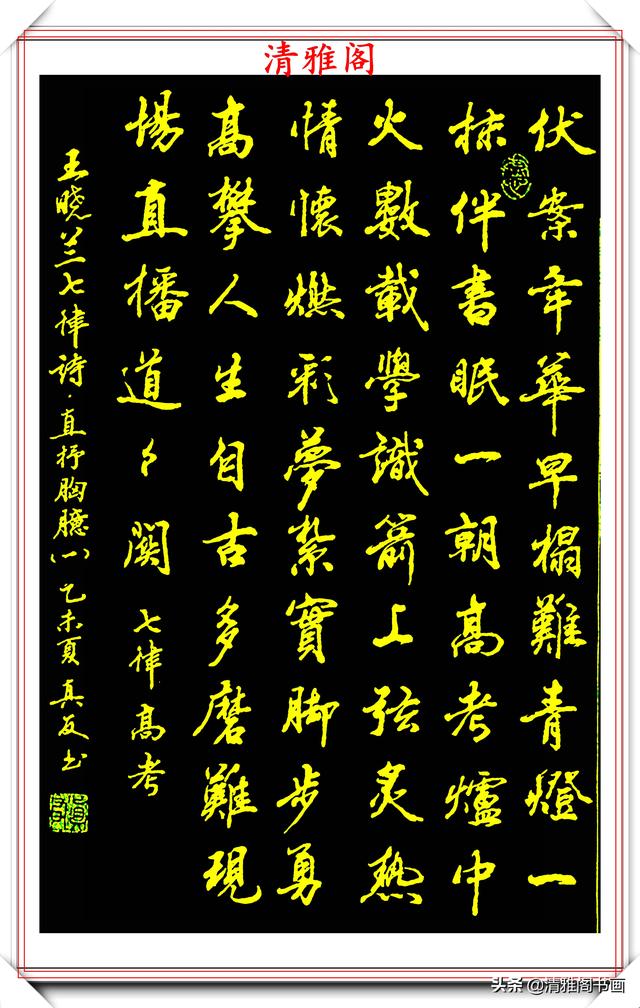 清雅阁
伏案年華早榻難青燈一
抹伴書眠一朝高考爐中
火數載學識箭上弦炙熱
情懷燃彩夢紮實脚步勇
高攀人生自古多磨難現
場直播道々關 七律高考
王晓兰七律詩·直抒胸臆(一)乙未夏真友书
头条 @清雅阁书画